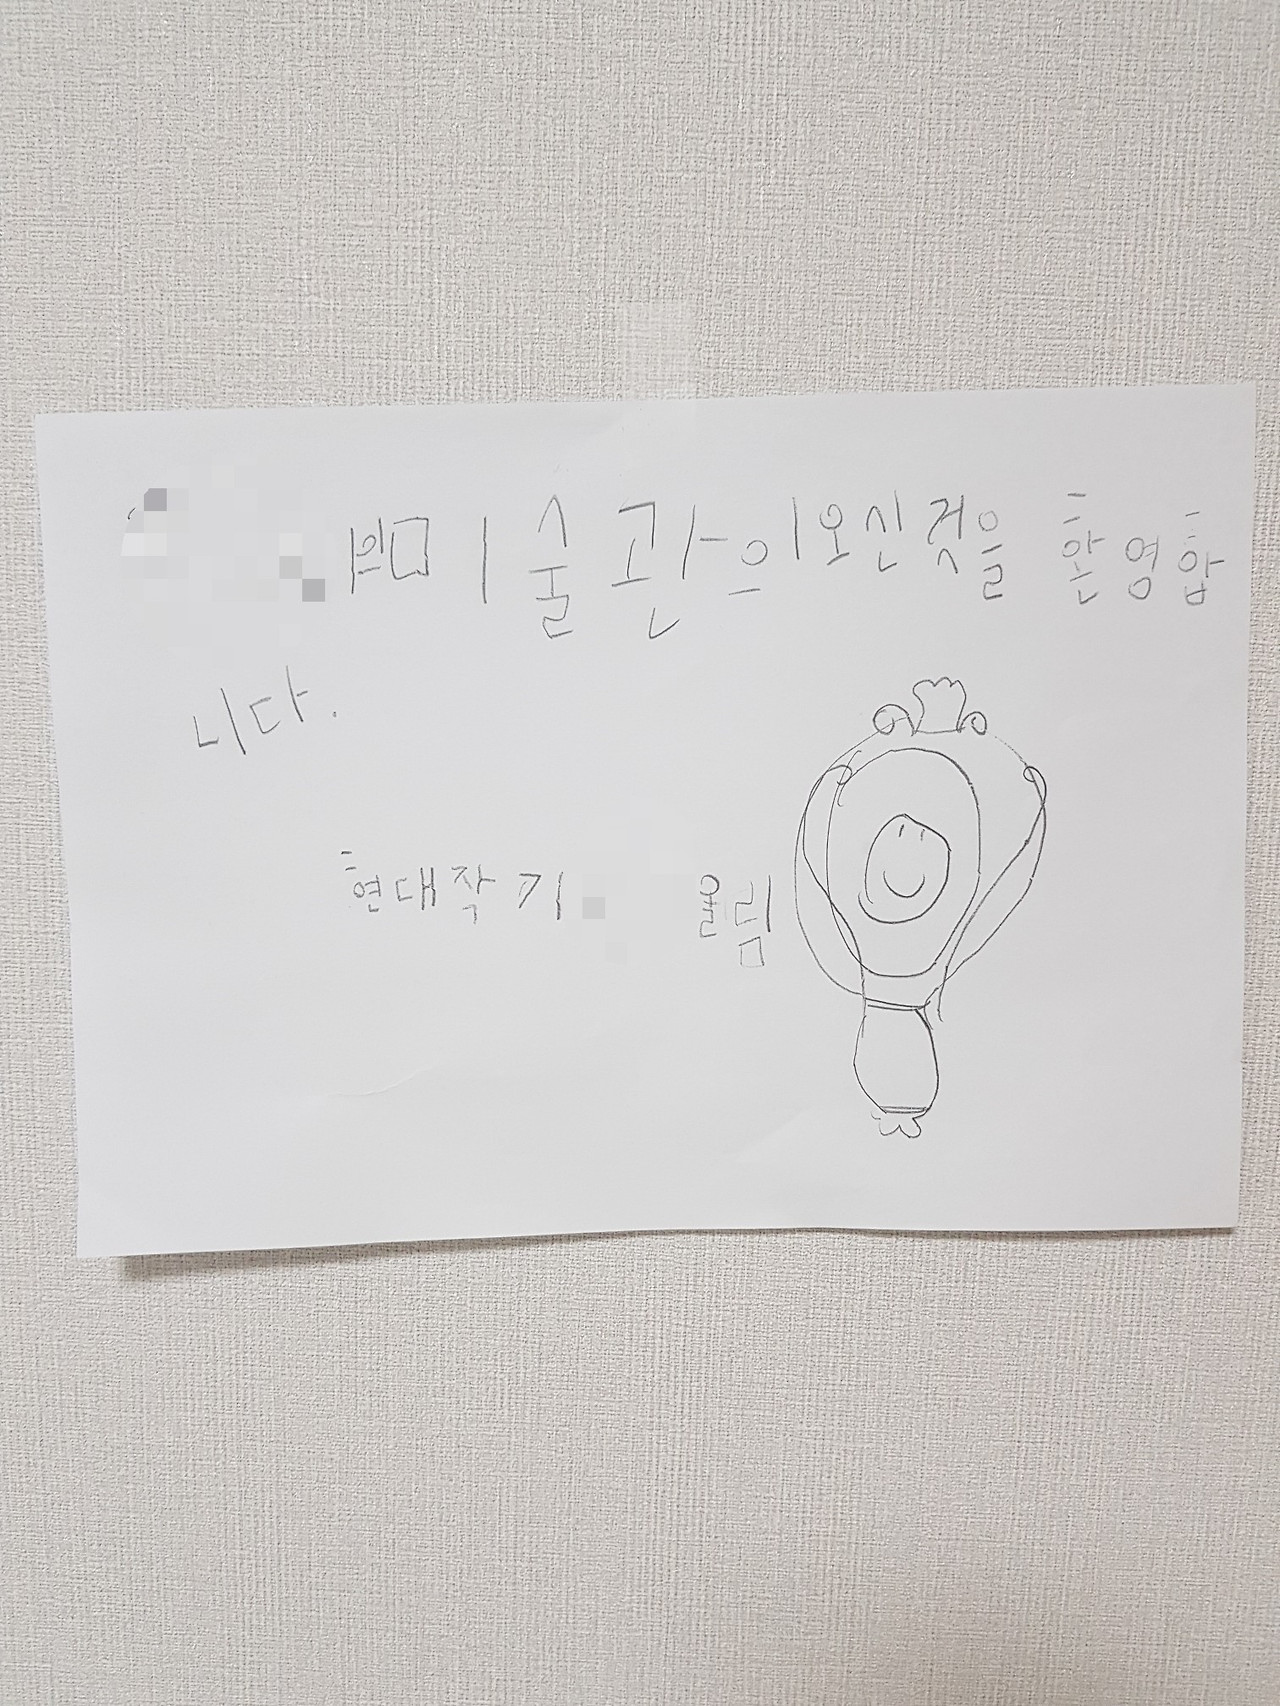 미술관의오신것을 환영합
니다.
현대작기 올림